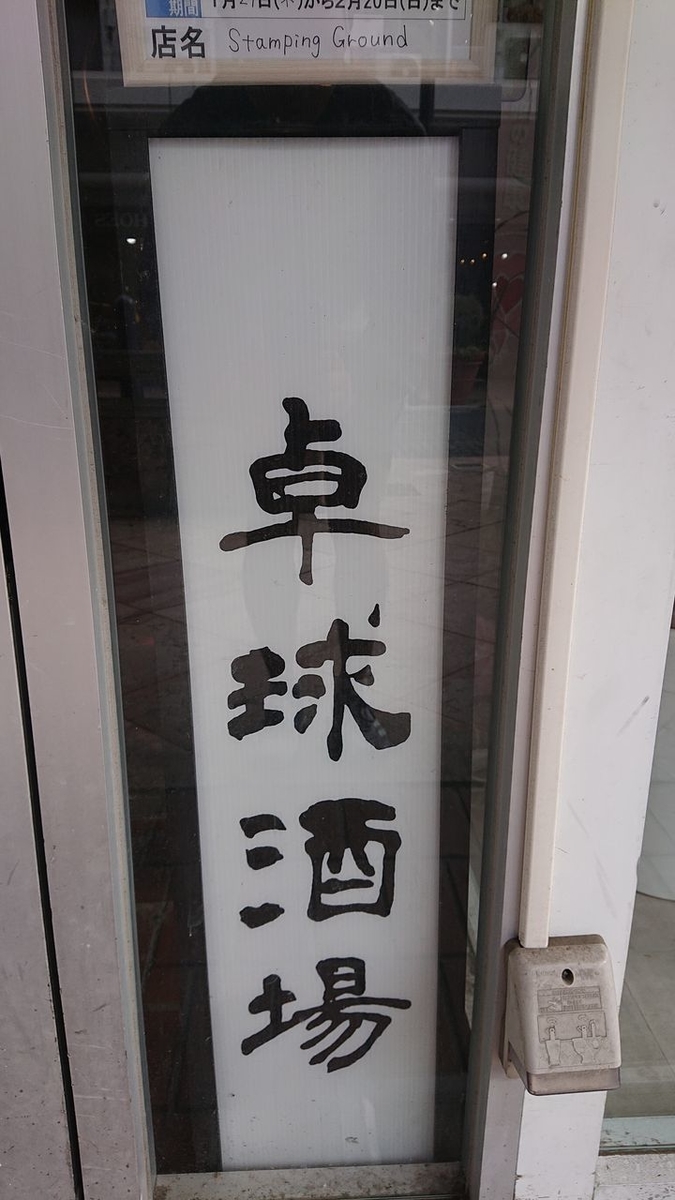 期間 1月27日(木)から2月20日(日)まで
店名 Stamping Ground
卓球酒場